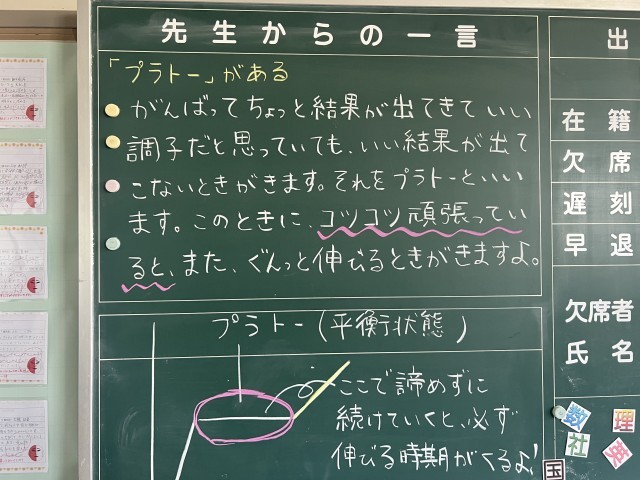 先生からの一言
「プラトー」がある
がんばってちょっと結果が出てきていい
調子だと思っていても、いい結果が出て
こないときがきます。それをプラトーといい
ます。このときに、コツコツ頑張ってい
ると、また、ぐんっと伸びるときがきますよ。
プラトー(平衡状態)
ここで諦めずに
続けていくと、必ず
伸びる時期がくるよ!
出
在籍
欠席
遅刻
早退
欠席者
氏名
数
理
社
英
国